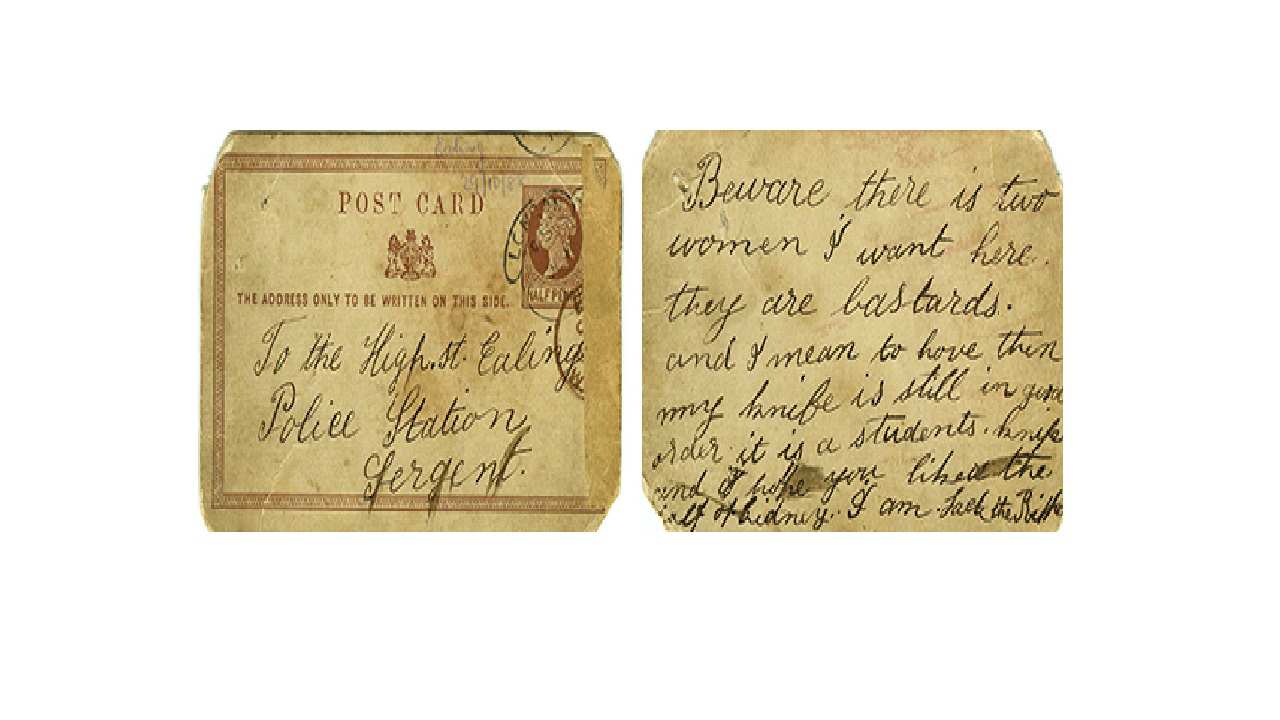 Ealing
29/10/88
POST CARD
THE ADDRESS ONLY TO BE WRITTEN ON THIS SIDE.
To the High.st. Ealing
Police Station
Sergent.
Beware there is two
women I want here.
they are bastards.
and I mean to have them
my knife is still in good
order it is a students. knife
and I hope you liked the
half of kidney. I am Jack the Ripper